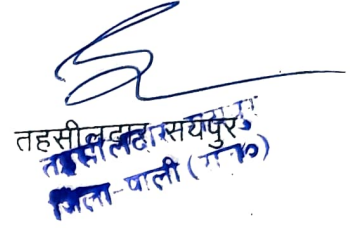 तहसीलदार सयपुर
तहसीलदार
जिला-पाली (राज०)